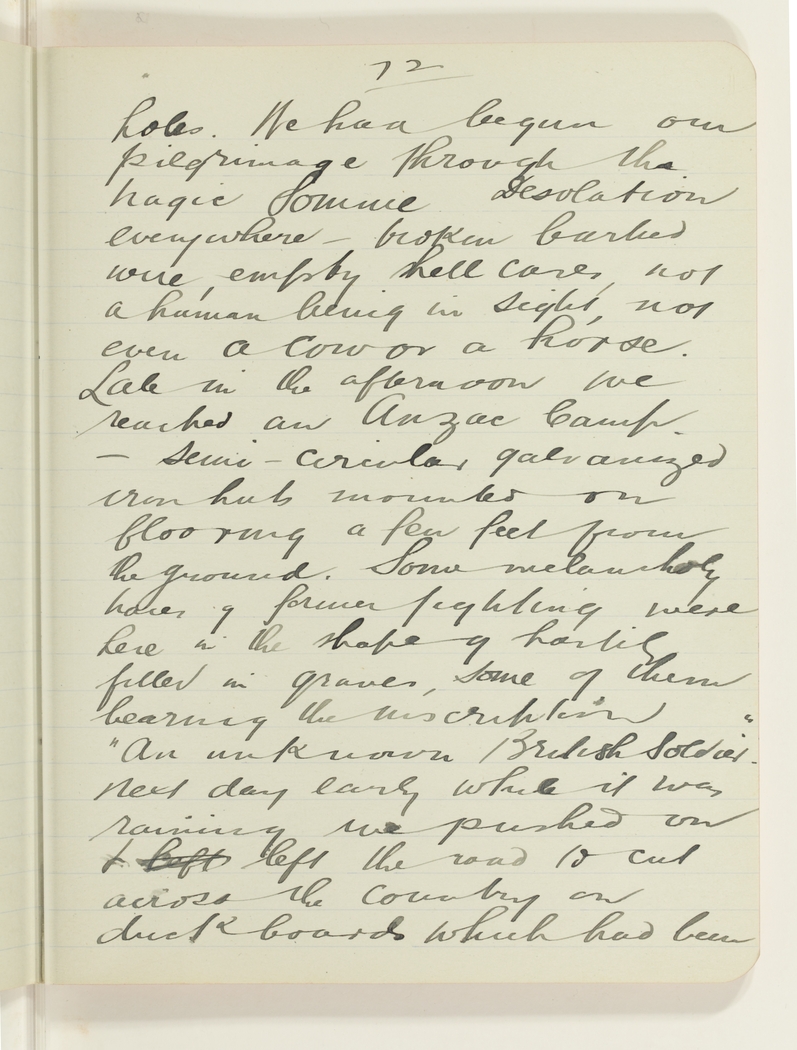 72
holes. We had begun our
pilgrimage through the
tragic Somme Desolation
everywhere - broken barbed
wire, empty shell cases, not
a human being in sight, not
even a cow or a horse.
Late in the afternoon we
reached an Anzac Camp.
- semi-circular galvanized
iron huts mounted on
flooring a few feet from
the ground. Some melancholy
traces of former fighting were
here in the shape of hastily
filled in graves, some of them
bearing the inscription
"An unknown British Soldier."
next day early while it was
raining we pushed on
& left left the road to cut
across the country on
duckboards which had been